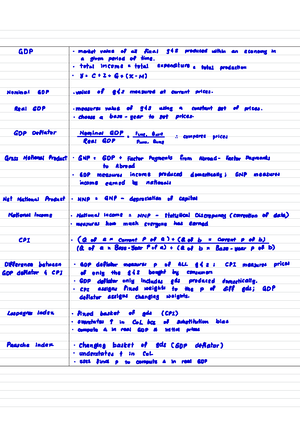 GDP
· market value of all final g&s produced within an economy in
a given period of time.
· total income = total expenditure = total production
· Y = C + I + G + (X - M)
Nominal GDP
· value of g&s measured at current prices.
Real GDP
· measures value of g&s using a constant set of prices.
· choose a base-year to set prices
GDP Deflator
Nominal GDP
Real GDP
∴ compares prices
Gross National Product
· GNP = GDP + Factor Payments from Abroad - Factor Payments
to Abroad
· GDP measures income produced domestically; GNP measures
income earned by nationals
Net National Product
· NNP = GNP - depreciation of capital
National Income
· National Income = NNP - Statistical Discrepancy (correction of data)
· measures how much everyone has earned
CPI
(Q of a × Current P of a) + (Q of b × Current P of b)
(Q of a × Base-Year P of a) + (Q of b × Base-year P of b)
Difference between
GDP deflator & CPI
· GDP deflator measures p of ALL g&s; CPI measures prices
of only the g&s bought by consumers
· GDP deflator only includes g&s produced domestically.
· CPI assigns fixed weights to the p of diff g&s; GDP
deflator assigns changing weights.
Laspeyres Index
· fixed basket of g&s (CPI)
· overstates ↑ in CoL bcs of substitution bias
· compute Δ in real GDP
Paasche Index
· changing basket of g&s (GDP deflator)
· understates ↑ in CoL
· uses final p to compute Δ in real GDP